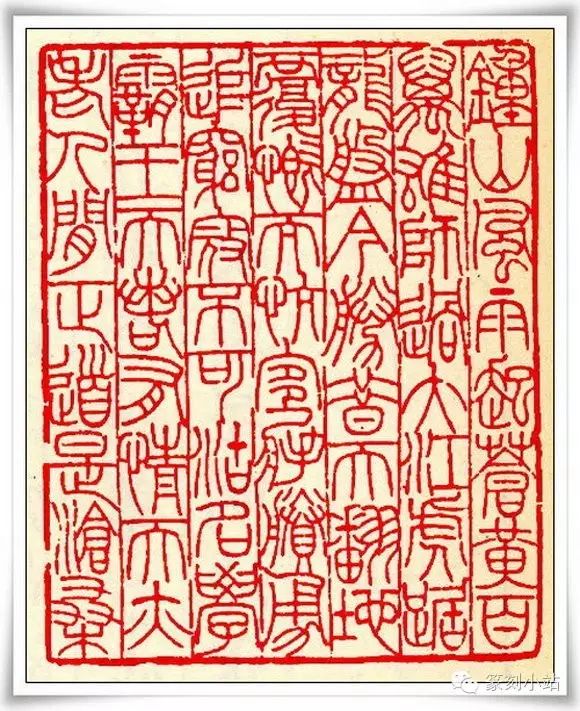 鍾山風雨起蒼黃百
萬雄師過大江虎踞
龍盤今勝昔天翻地
覆慨而慷宜將賸勇
追窮寇不可沽名學
霸王天若有情天亦
老人間正道是滄桑
篆刻小站